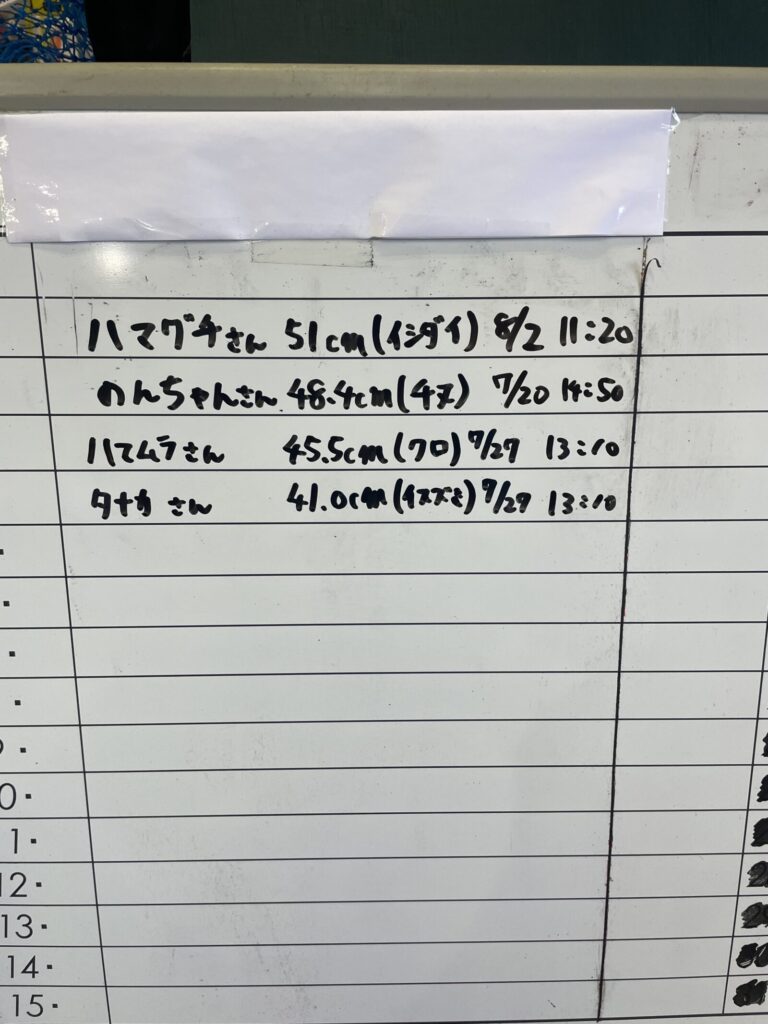 ハマグチさん 51cm(イシダイ) 8/2 11:20
のんちゃんさん 48.4cm(チヌ) 7/20 14:50
ハマムラさん 45.5cm(クロ) 7/27 13:10
タナカさん 41.0cm(イスズミ) 7/27 13:10
9.
10.
11.
12.
13.
14.
15.